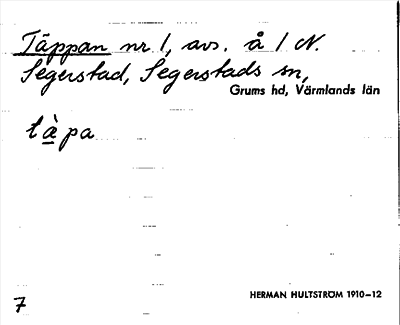 Täppan nr 1, avs. å 1 N.
Segerstad, Segerstads sn,
Grums hd, Värmlands län
tàpa
HERMAN HULTSTRÖM 1910–12
7